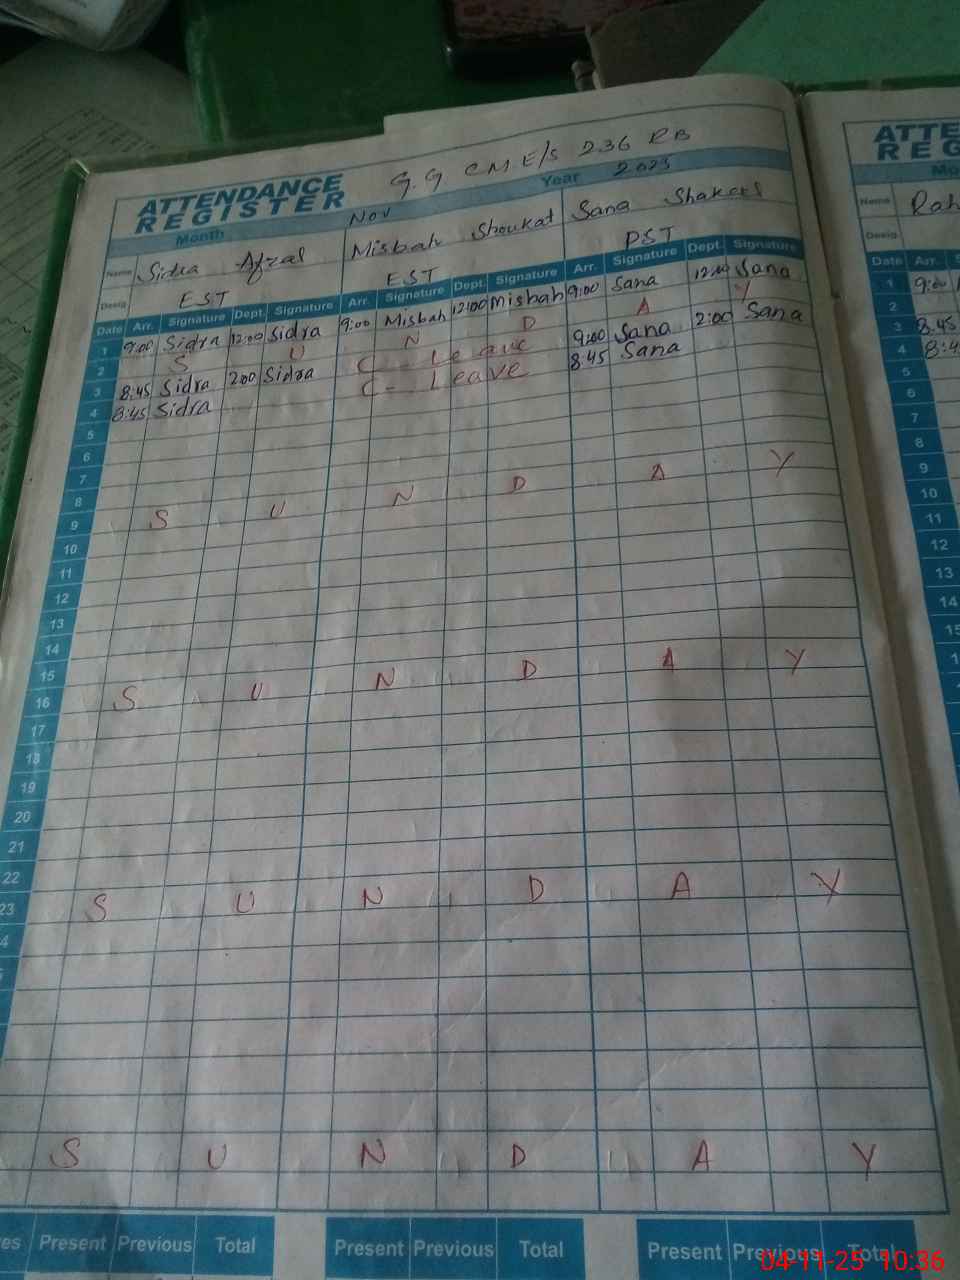 G.G CME/S 236 RB
ATTENDANCE REGISTER
Month Nov Year 2025
Name Sidra Afzal Misbah Shoukat Sana Shakeel
Desig. EST EST PST
Date Arr. Signature Dept. Signature Arr. Signature Dept. Signature Arr. Signature Dept. Signature
1 9:00 Sidra 12:00 Sidra 9:00 Misbah 12:00 Misbah 9:00 Sana 12:00 Sana
2 S U N D A Y
3 8:45 Sidra 2:00 Sidra C - Leave 9:00 Sana 2:00 Sana
4 8:45 Sidra C - Leave 8:45 Sana
5
6
7
8
9 S U N D A Y
10
11
12
13
14
15
16 S U N D A Y
17
18
19
20
21
22
23 S U N D A Y
4
S U N D A Y
Present Previous Total Present Previous Total Present Previous Total
ATTE
REG
Mo
Name Rah
Desig.
Date Arr. S
1 9:00
2
3 8:45
4 8:4
5
6
7
8
9
10
11
12
13
14
15
04-11-25 10:36